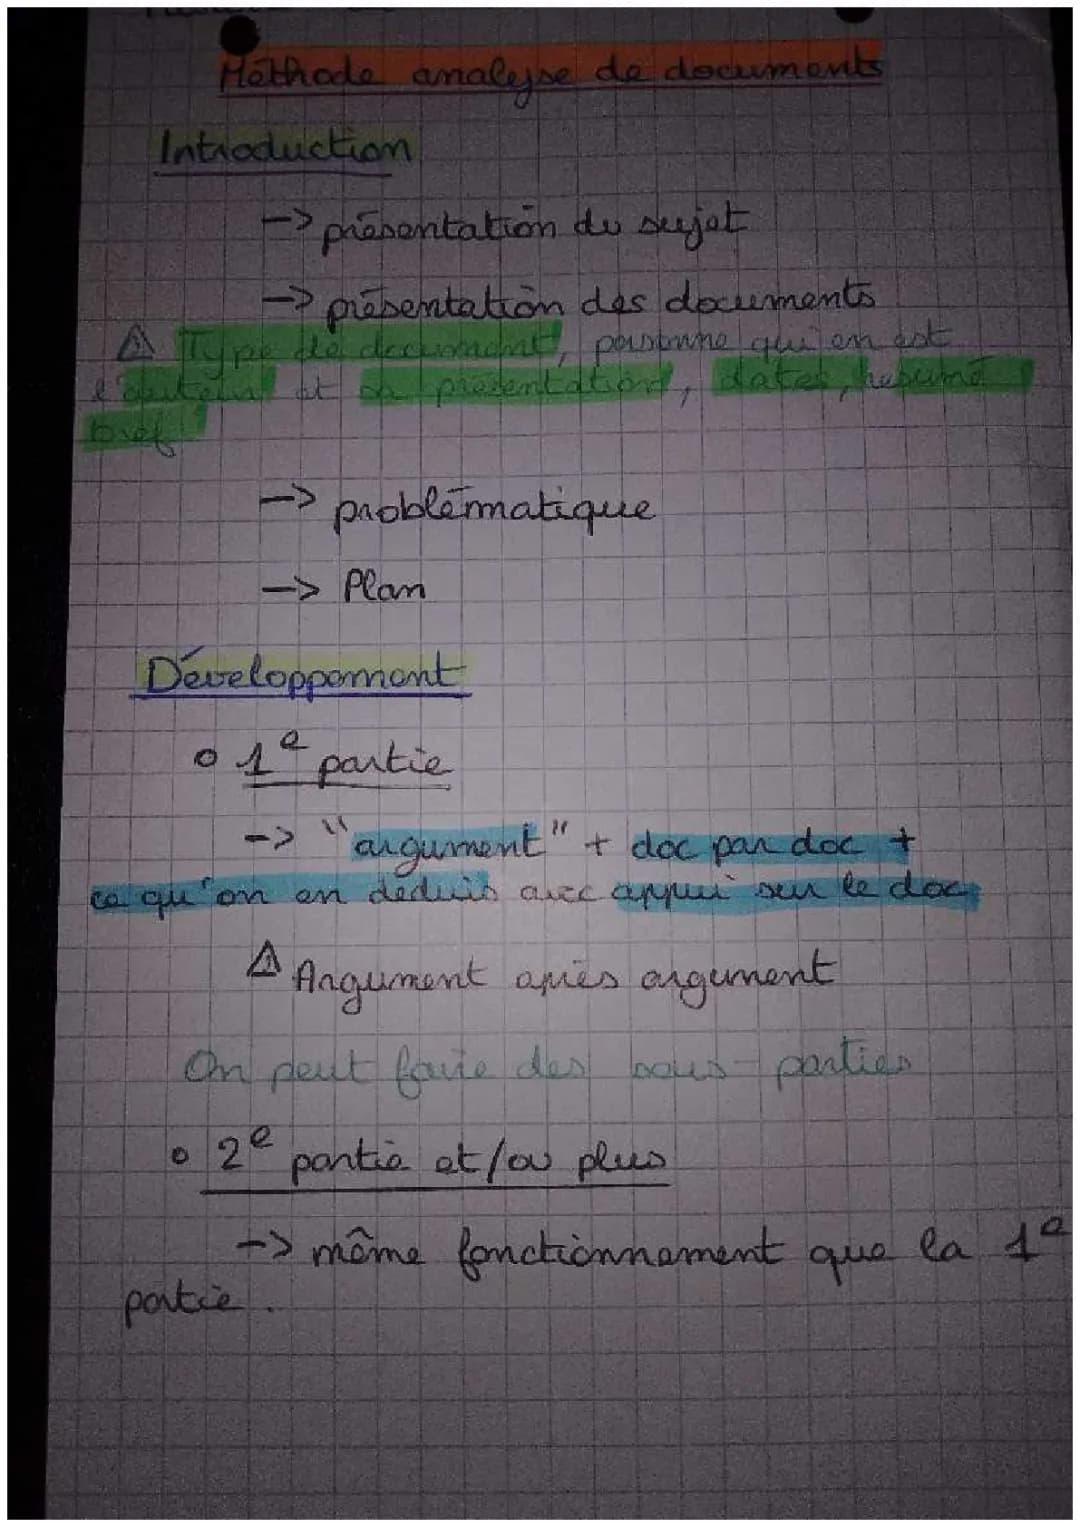 Méthode analyse de documents
Introduction
-> présentation du sujet
-> présentation des documents
⚠ Type de document, personne qui en est
l'auteur et sa présentation, dates, résumé
bref
-> problématique
-> Plan
Développement
o 1e partie
-> "argument" + doc par doc +
ce qu'on en déduis avec appui sur le doc
⚠ Argument après argument
On peut faire des sous-parties
o 2e partie et/ou plus
-> même fonctionnement que la 1e
partie.